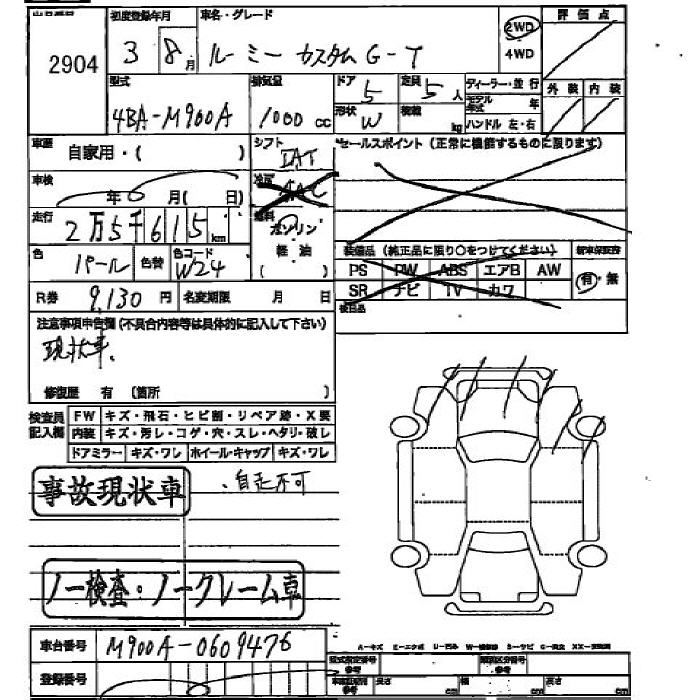 2904
初度登録年月
3 8月
車名・グレード
ルーミー カスタムG-T
2WD
4WD
評価点
外装 内装
型式
4BA-M900A
排気量
1000 cc
ドア 5
形状 W
定員 5人
積載 kg
ディーラー・並行
モデル年式 年
ハンドル 左・右
車歴 自家用・( )
シフト IAT
セールスポイント (正常に機能するものに限ります)
車検 年 月( 日)
冷房 AAC
走行 2万5千615km
燃料 ガソリン
軽油
( )
色 パール 色替
色コード W24
装備品 (純正品に限り○をつけてください)
新車保証書
有・無
PS PW ABS エアB AW
SR ナビ TV カワ
後日品
R券 9,130円 名変期限 月 日
注意事項申告欄(不具合内容等は具体的に記入して下さい)
現状車.
修復歴 有 〔箇所 〕
検査員記入欄
FW キズ・飛石・ヒビ割・リペア跡・X要
内装 キズ・汚レ・コゲ・穴・スレ・ヘタリ・破レ
ドアミラー キズ・ワレ ホイール・キャップ キズ・ワレ
事故現状車
・自走不可
ノー検査・ノークレーム車
車台番号 M900A-0609476
登録番号
A-キズ E-エクボ U-凹み W-補修跡 S-サビ C-腐食 XX-交換済
型式指定番号 類別区分番号
長さ cm 幅 cm 高さ cm